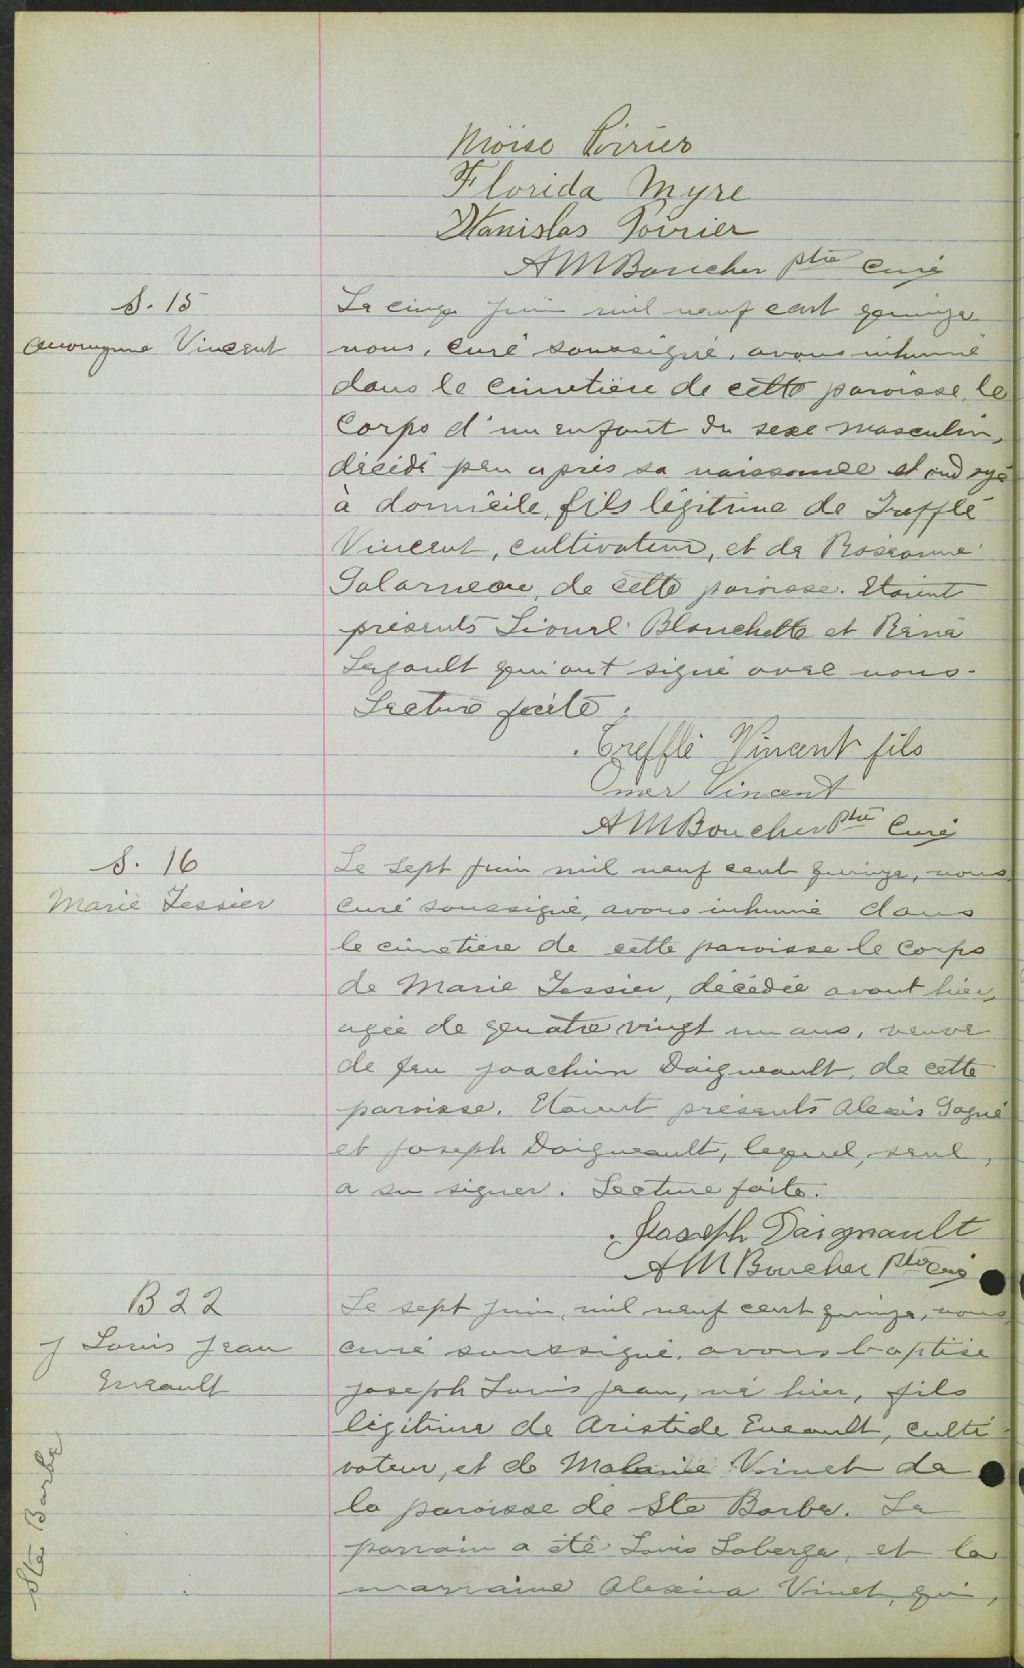 Moïse Poirier
Florida Myre
Stanislas Poirier
AMBoucher ptre curé
S. 15
Anonyme Vincent
Le cinq juin mil neuf cent quinze
nous, curé soussigné, avons inhumé
dans le cimetière de cette paroisse, le
corps d'un enfant du sexe masculin,
décédé peu après sa naissance et ondoyé
à domicile, fils légitime de Trefflé
Vincent, cultivateur, et de Roséanne
Galarneau, de cette paroisse. Etaient
présents Lionel Blanchette et Réné
Legault qui ont signé avec nous.
Lecture faite.
Trefflé Vincent fils
Omer Vincent
AMBoucher Ptre Curé
S. 16
Marie Tessier
Le sept juin mil neuf cent quinze, nous,
curé soussigné, avons inhumé dans
le cimetière de cette paroisse le corps
de Marie Tessier, décédée avant hier,
agée de quatre vingt un ans, veuve
de feu Joachim Daigneault, de cette
paroisse. Etaient présents Alexis Gagné
et Joseph Daigneault, lequel, seul,
a su signer. Lecture faite.
Joseph Daignault
AMBoucher ptre curé
B 22
J Louis Jean
Eneault
Ste Barbe
Le sept juin, mil neuf cent quinze, nous,
curé soussigné, avons baptisé
Joseph Louis Jean, né hier, fils
légitime de Aristide Eneault, culti-
vateur, et de Melanie Vinet de
la paroisse de Ste Barbe. Le
parrain a été Louis Laberge, et la
marraine Alexina Vinet, qui,